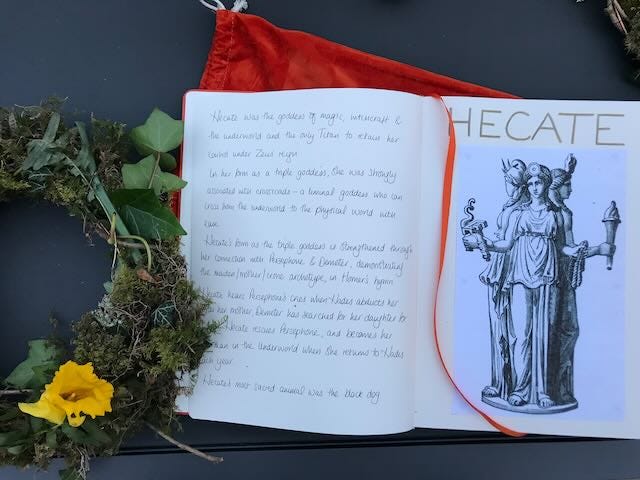 Hecate was the goddess of magic, witchcraft &
the underworld and the only Titan to retain her
control under Zeus reign
In her form as a triple goddess, she was strongly
associated with crossroads – a liminal goddess who can
cross from the underworld to the physical world with
ease.
Hecate's form as the triple goddess is strengthened through
her connection with Persephone & Demeter, demonstrating
the maiden/mother/crone archetype, in Homer's hymn
Hecate hears Persephone's cries when Hades abducts her
her mother Demeter has searched for her daughter for
Hecate rescues Persephone, and becomes her
in the Underworld when she returns to Hades
year.
Hecate's most sacred animal was the black dog
HECATE